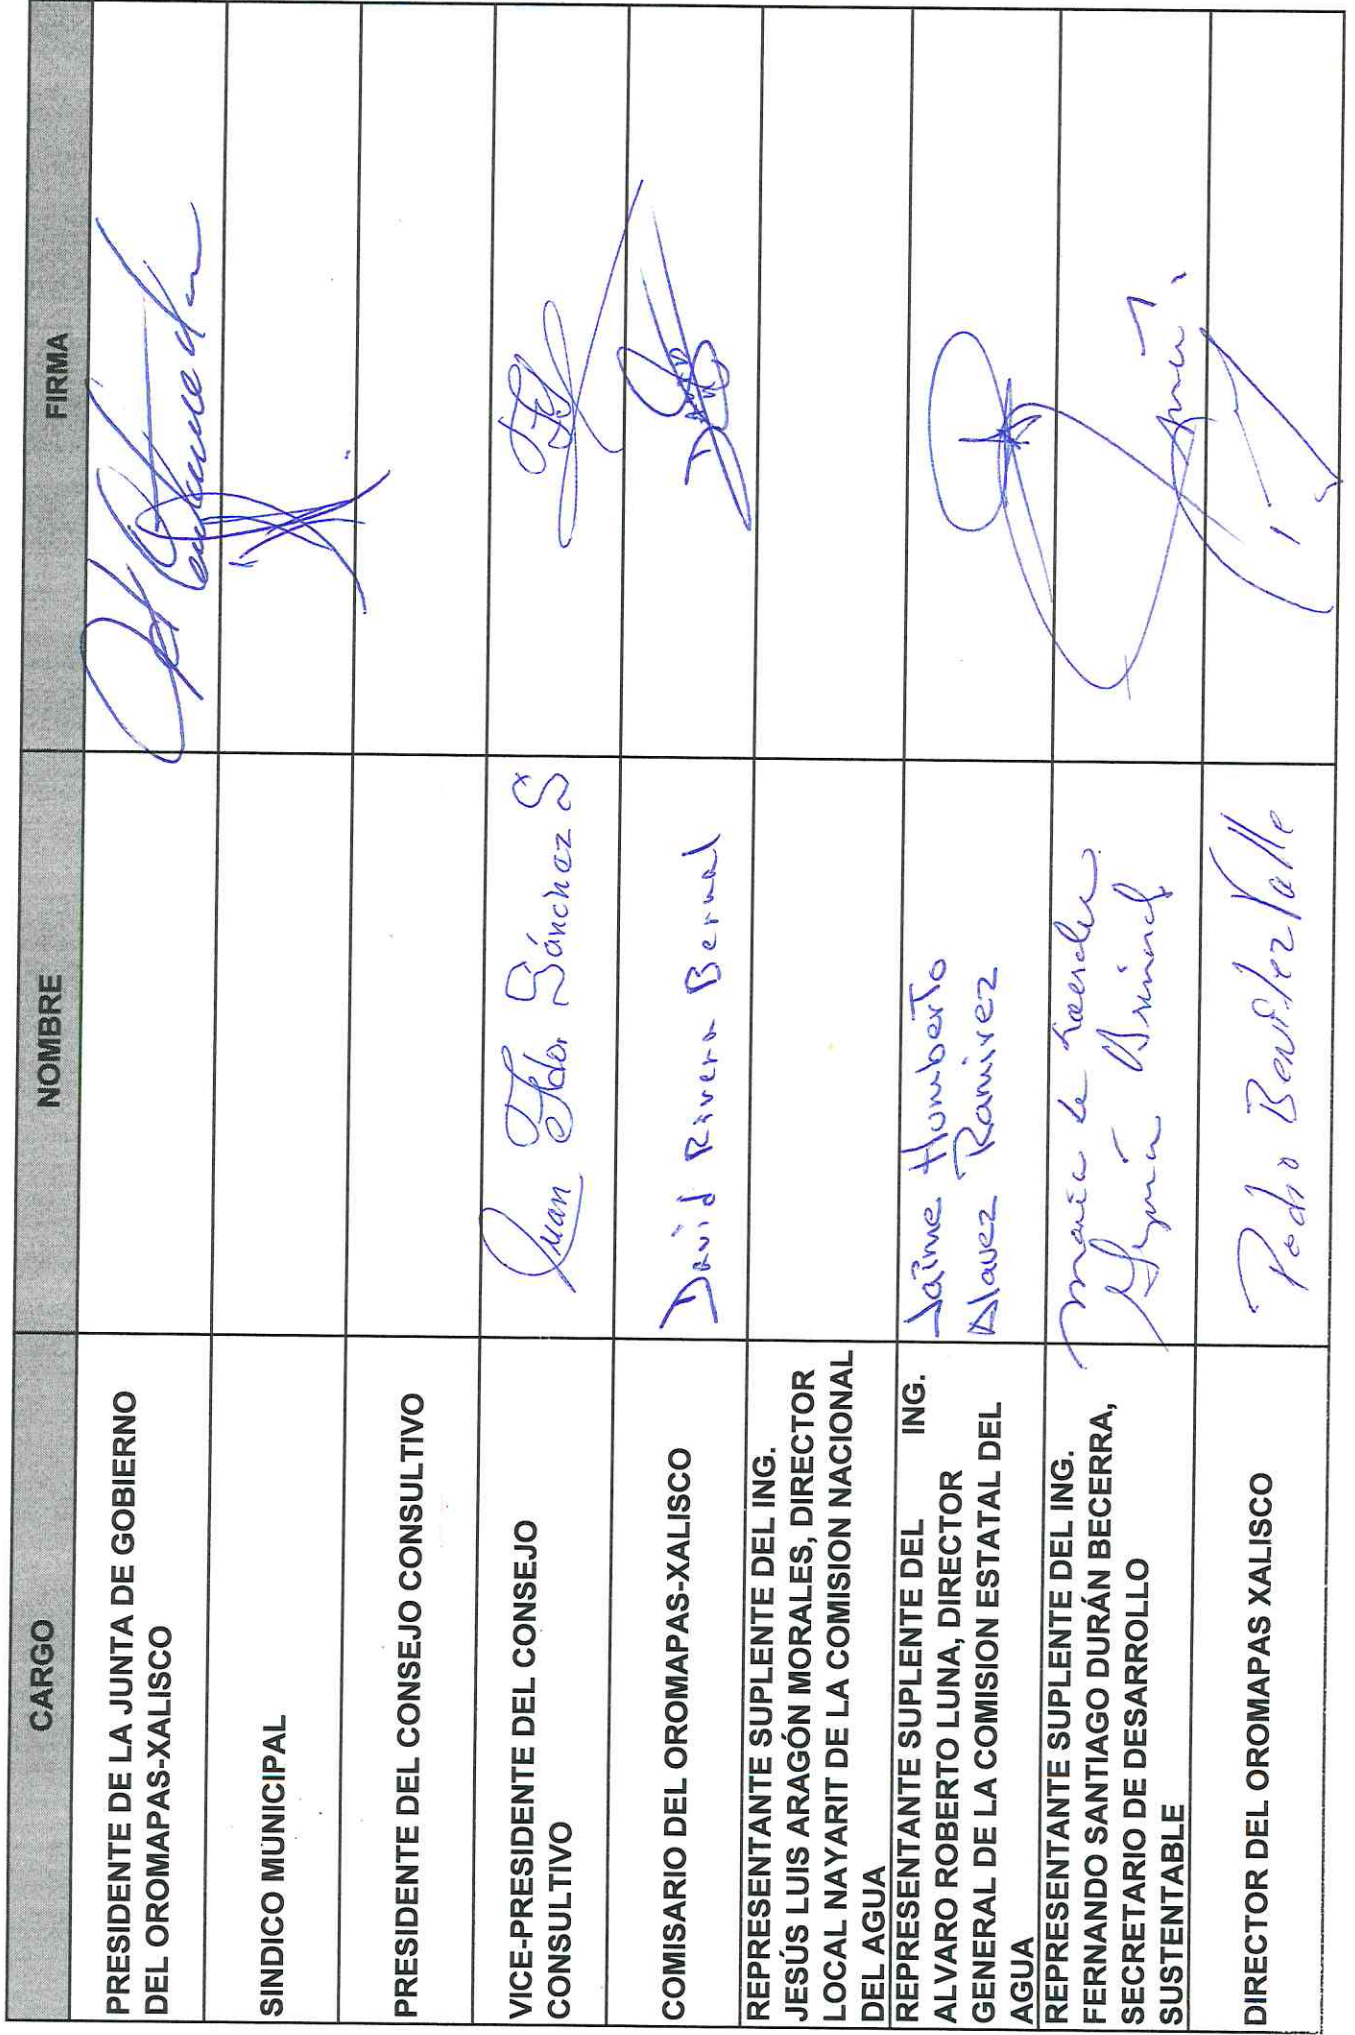 CARGO NOMBRE FIRMA
PRESIDENTE DE LA JUNTA DE GOBIERNO
DEL OROMAPAS-XALISCO
SINDICO MUNICIPAL
PRESIDENTE DEL CONSEJO CONSULTIVO
VICE-PRESIDENTE DEL CONSEJO
CONSULTIVO
Juan Sánchez S
COMISARIO DEL OROMAPAS-XALISCO
David Rivera Bernal
DAVID
REPRESENTANTE SUPLENTE DEL ING.
JESÚS LUIS ARAGÓN MORALES, DIRECTOR
LOCAL NAYARIT DE LA COMISION NACIONAL
DEL AGUA
REPRESENTANTE SUPLENTE DEL ING.
ALVARO ROBERTO LUNA, DIRECTOR
GENERAL DE LA COMISION ESTATAL DEL
AGUA
Jaime Humberto
Alavez Ramirez
REPRESENTANTE SUPLENTE DEL ING.
FERNANDO SANTIAGO DURÁN BECERRA,
SECRETARIO DE DESARROLLO
SUSTENTABLE
María de
DIRECTOR DEL OROMAPAS XALISCO
Pedro Benitez Valle